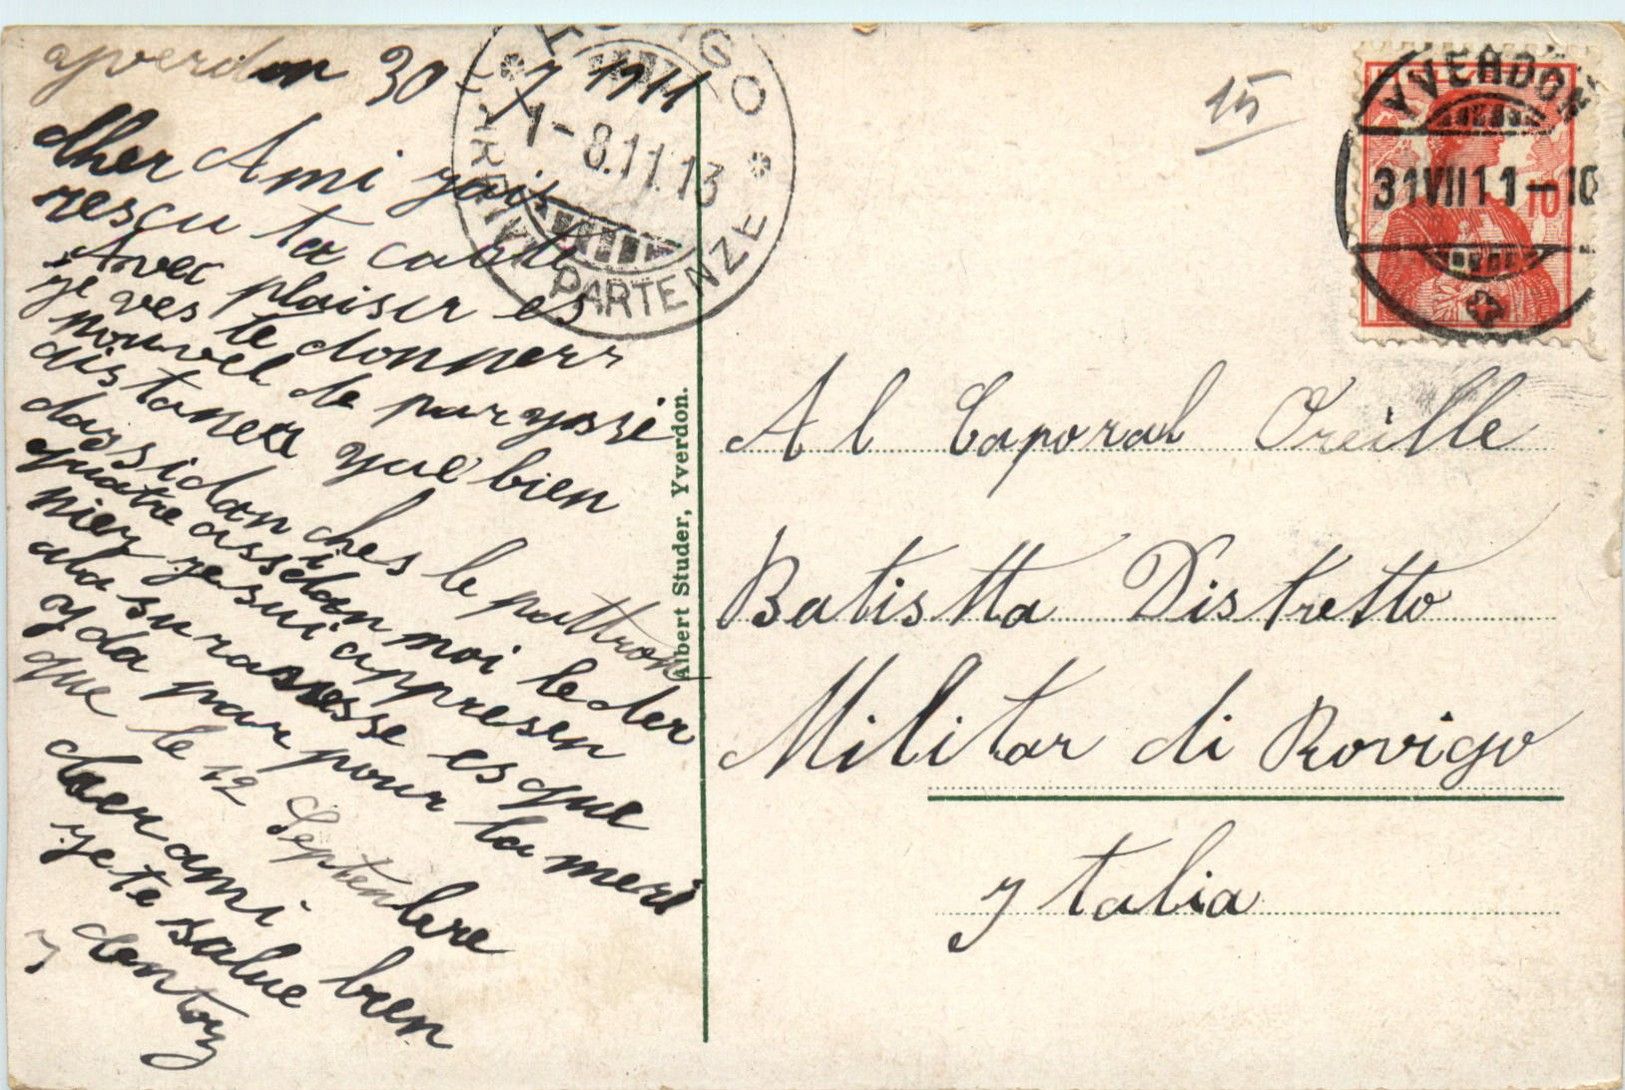 yverdon 30 - 7 1911
cher Ami yais
resçu ta carte
Avec plaisir es
ye ves te donnerr
nouvel de par yssi
distanct que bien
dassi dan ches le pattron
quatre assi dan moi le der
nier ye sui appresen
ala surasesse es que
y da par pour la meri
que le 12 Septenbre
cher ami
ye te salue bien
y dontoy
ROVIGO
1-8.11.13
ARRIVI PARTENZE
Albert Studer, Yverdon.
15
YVERDON
31 VII 11-10
10
Al Caporal Oreille
Batistta Distretto
Militar di Rovigo
ytalia